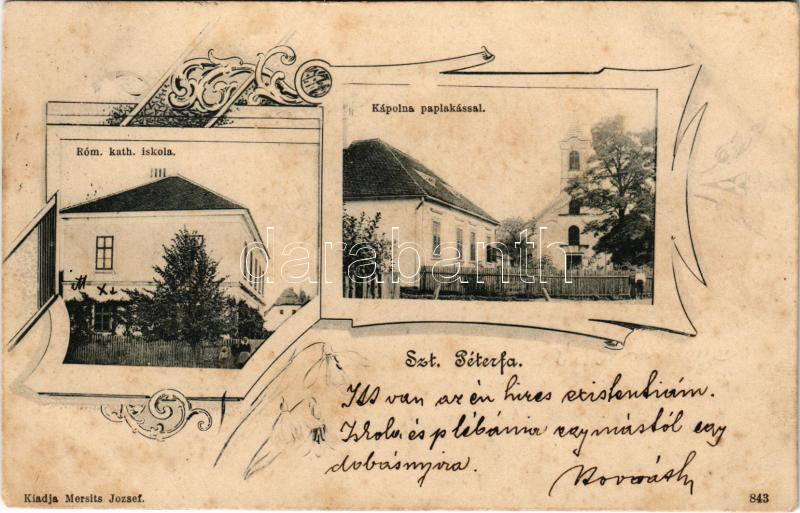 Kápolna paplakással.
Róm. kath. iskola.
darabanth
Itt
Szt. Péterfa.
Itt van az én hires existentiám.
Iskola és plébánia egymástól egy
dobásnyira.
Horváth
Kiadja Mersits Jozsef.
843